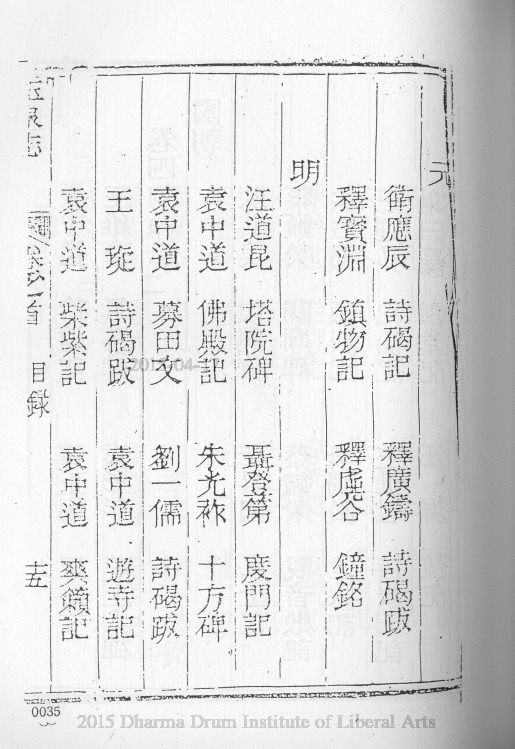 元
衛應辰 詩碣記 釋廣鑄 詩碣跋
釋寶淵 鎮物記 釋虛谷 鐘銘
明
汪道昆 塔院碑 聶登第 度門記
袁中道 佛殿記 朱光祚 十方碑
袁中道 募田文 劉一儒 詩碣跋
王琁 詩碣跋 袁中道 遊寺記
袁中道 柴紫記 袁中道 爽籟記
玉泉志 卷首 目録 十五
0035
2015 Dharma Drum Institute of Liberal Arts